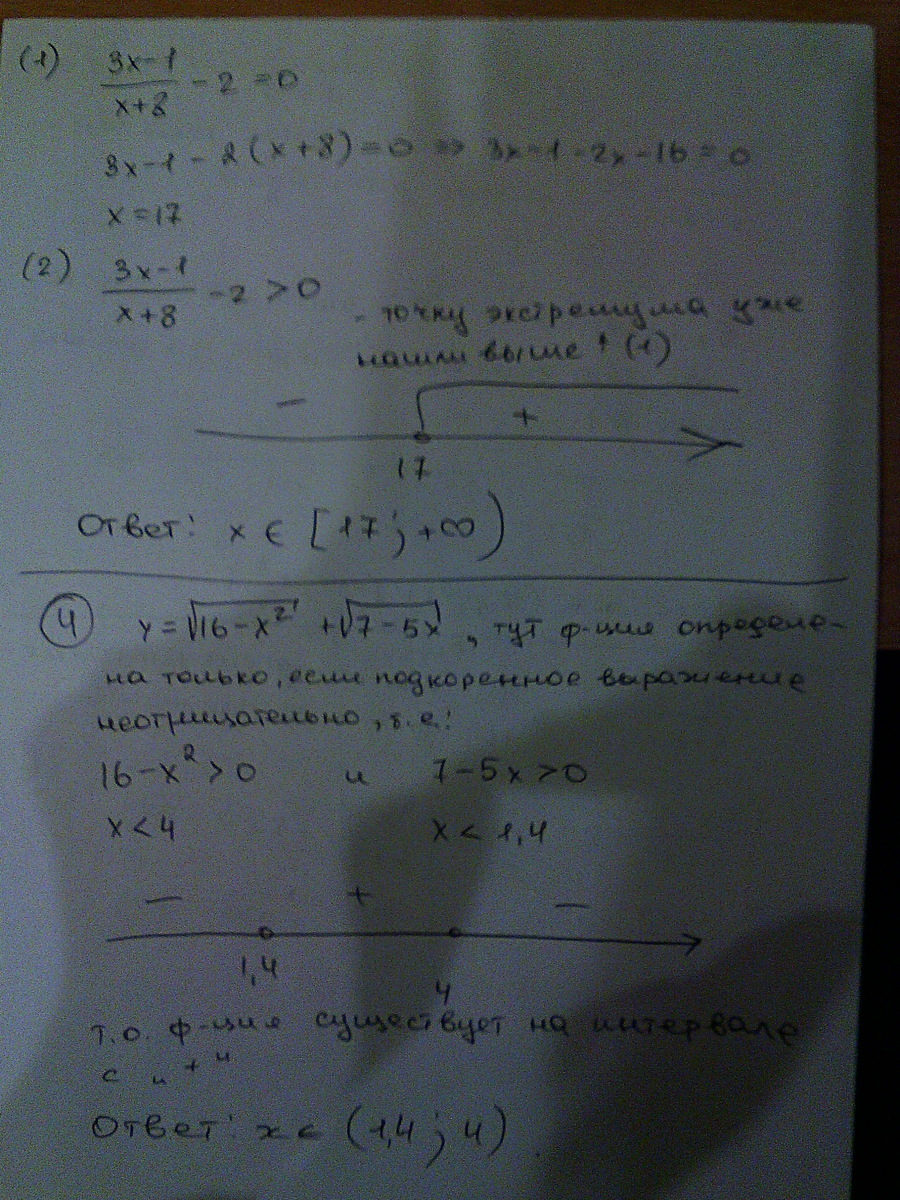 (1) (3x-1)/(x+8) - 2 = 0
3x-1 - 2(x+8) = 0 => 3x-1-2x-16 = 0
x = 17
(2) (3x-1)/(x+8) - 2 > 0
- точку экстремума уже
нашли выше ↑ (1)
- +
17
Ответ: x ∈ [17; +∞)
④ y = √(16-x²) + √(7-5x), тут ф-ция определе-
на только, если подкоренное выражение
неотрицательно, т.е.:
16-x² > 0 и 7-5x > 0
x < 4 x < 1,4
- + -
1,4 4
т.о. ф-ция существует на интервале
с "+"
Ответ: x ∈ (1,4; 4)